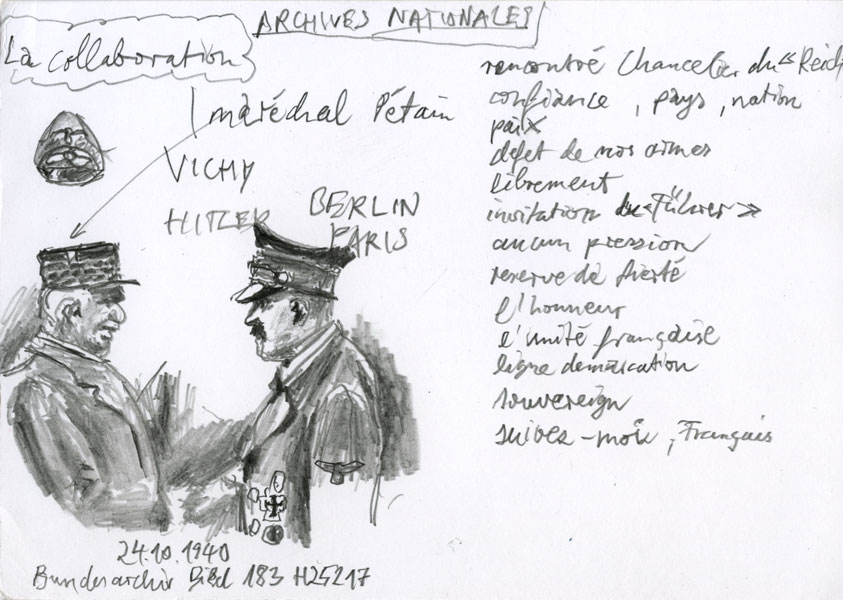 ARCHIVES NATIONALES
La collaboration
maréchal Pétain
VICHY
HITLER
BERLIN
PARIS
24.10.1940
Bundesarchiv Bild 183 H25217
rencontré Chancelier du "Reich
confiance, pays, nation
paix
défet de nos armes
librement
invitation du «Führer»
aucun pression
reserve de fierté
l'honneur
l'unité française
ligne demarcation
souvereign
suivez-moi, Français